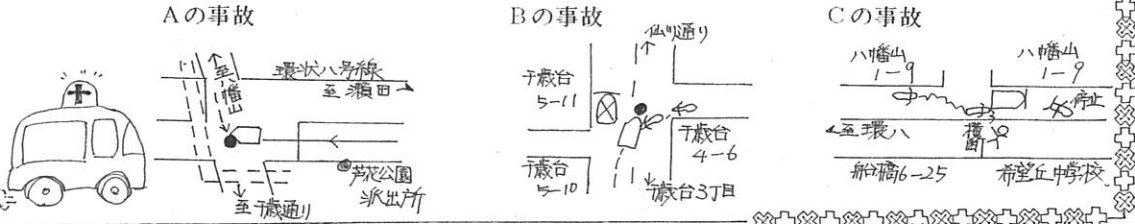 Aの事故
至八幡山
環状八号線
至瀬田
芦花公園
派出所
至千歳通り
Bの事故
仙川通り
千歳台
5-11
千歳台
4-6
千歳台
5-10
千歳台3丁目
Cの事故
八幡山
1-9
八幡山
1-9
停止
至環八
横断
船橋6-25
希望丘中学校